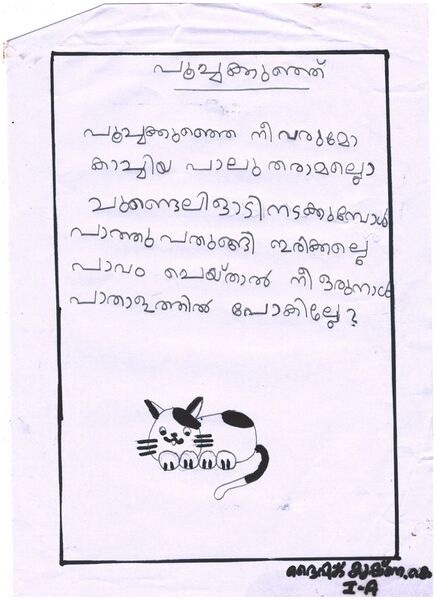 പൂച്ചക്കുഞ്ഞ്
പൂച്ചക്കുഞ്ഞെ നീ വരുമോ
കാച്ചിയ പാലു തരാമല്ലൊ
ചുണ്ടെലി ഓടി നടക്കുമ്പോൾ
പാത്തു പതുങ്ങി ഇരിക്കല്ലെ
പാവം ചെയ്താൽ നീ ഒരുനാൾ
പാതാളത്തിൽ പോകില്ലേ?
കെ
I-A